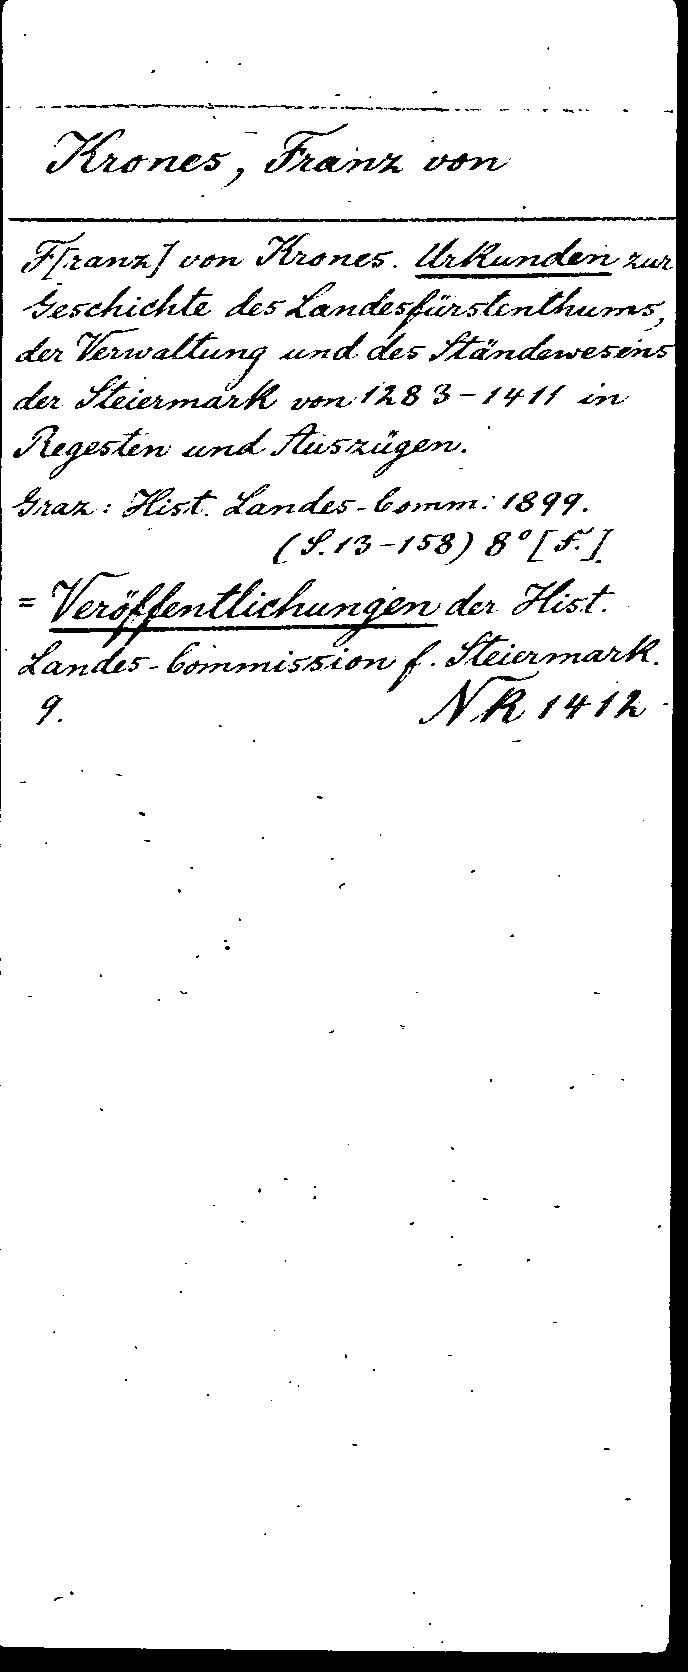 Krones, Franz von
F[ranz] von Krones. Urkunden zur
Geschichte des Landesfürstenthums,
der Verwaltung und des Ständewesens
der Steiermark von 1283-1411 in
Regesten und Auszügen.
Graz: Hist. Landes-Comm. 1899.
(S. 13-158) 8° [F.]
= Veröffentlichungen der Hist.
Landes-Commission f. Steiermark.
9. NK 1412